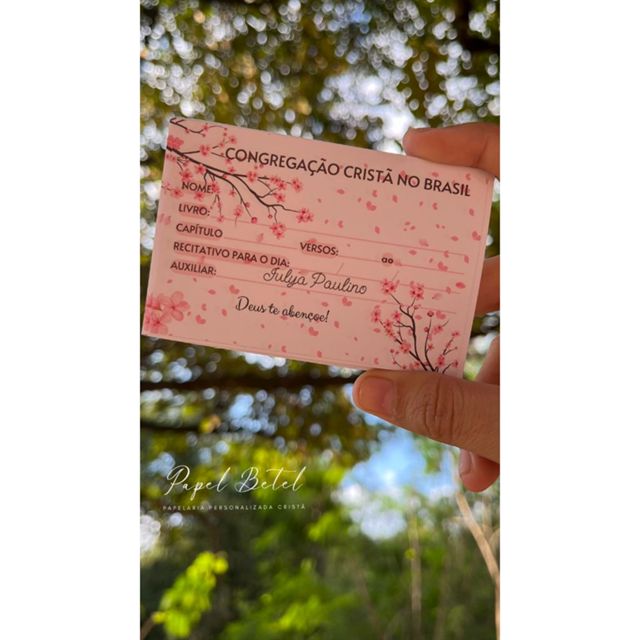 CONGREGAÇÃO CRISTÃ NO BRASIL
NOME:
LIVRO:
CAPÍTULO VERSOS: ao
RECITATIVO PARA O DIA: /
AUXILIAR: Julya Paulino
Deus te abençoe!
Papel Betel
PAPELARIA PERSONALIZADA CRISTÃ